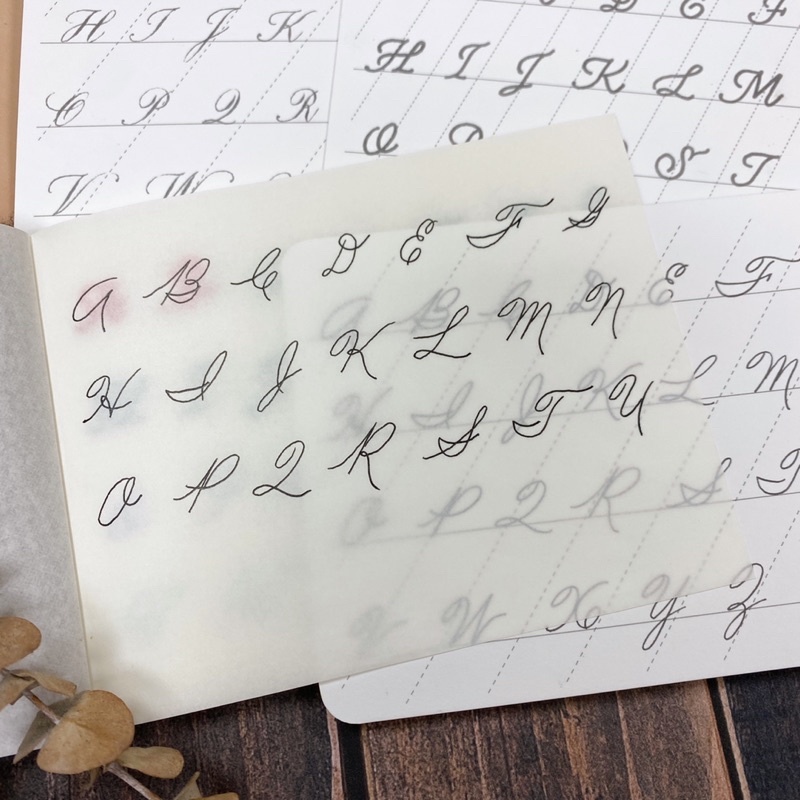 H I J K
O P Q R
V W
D E F
H I J K L M
O
S T
A B C D E F G
H I J K L M N
O P Q R S T U
A B C D E F
H I J K L M
O P Q R S T
V W X Y Z